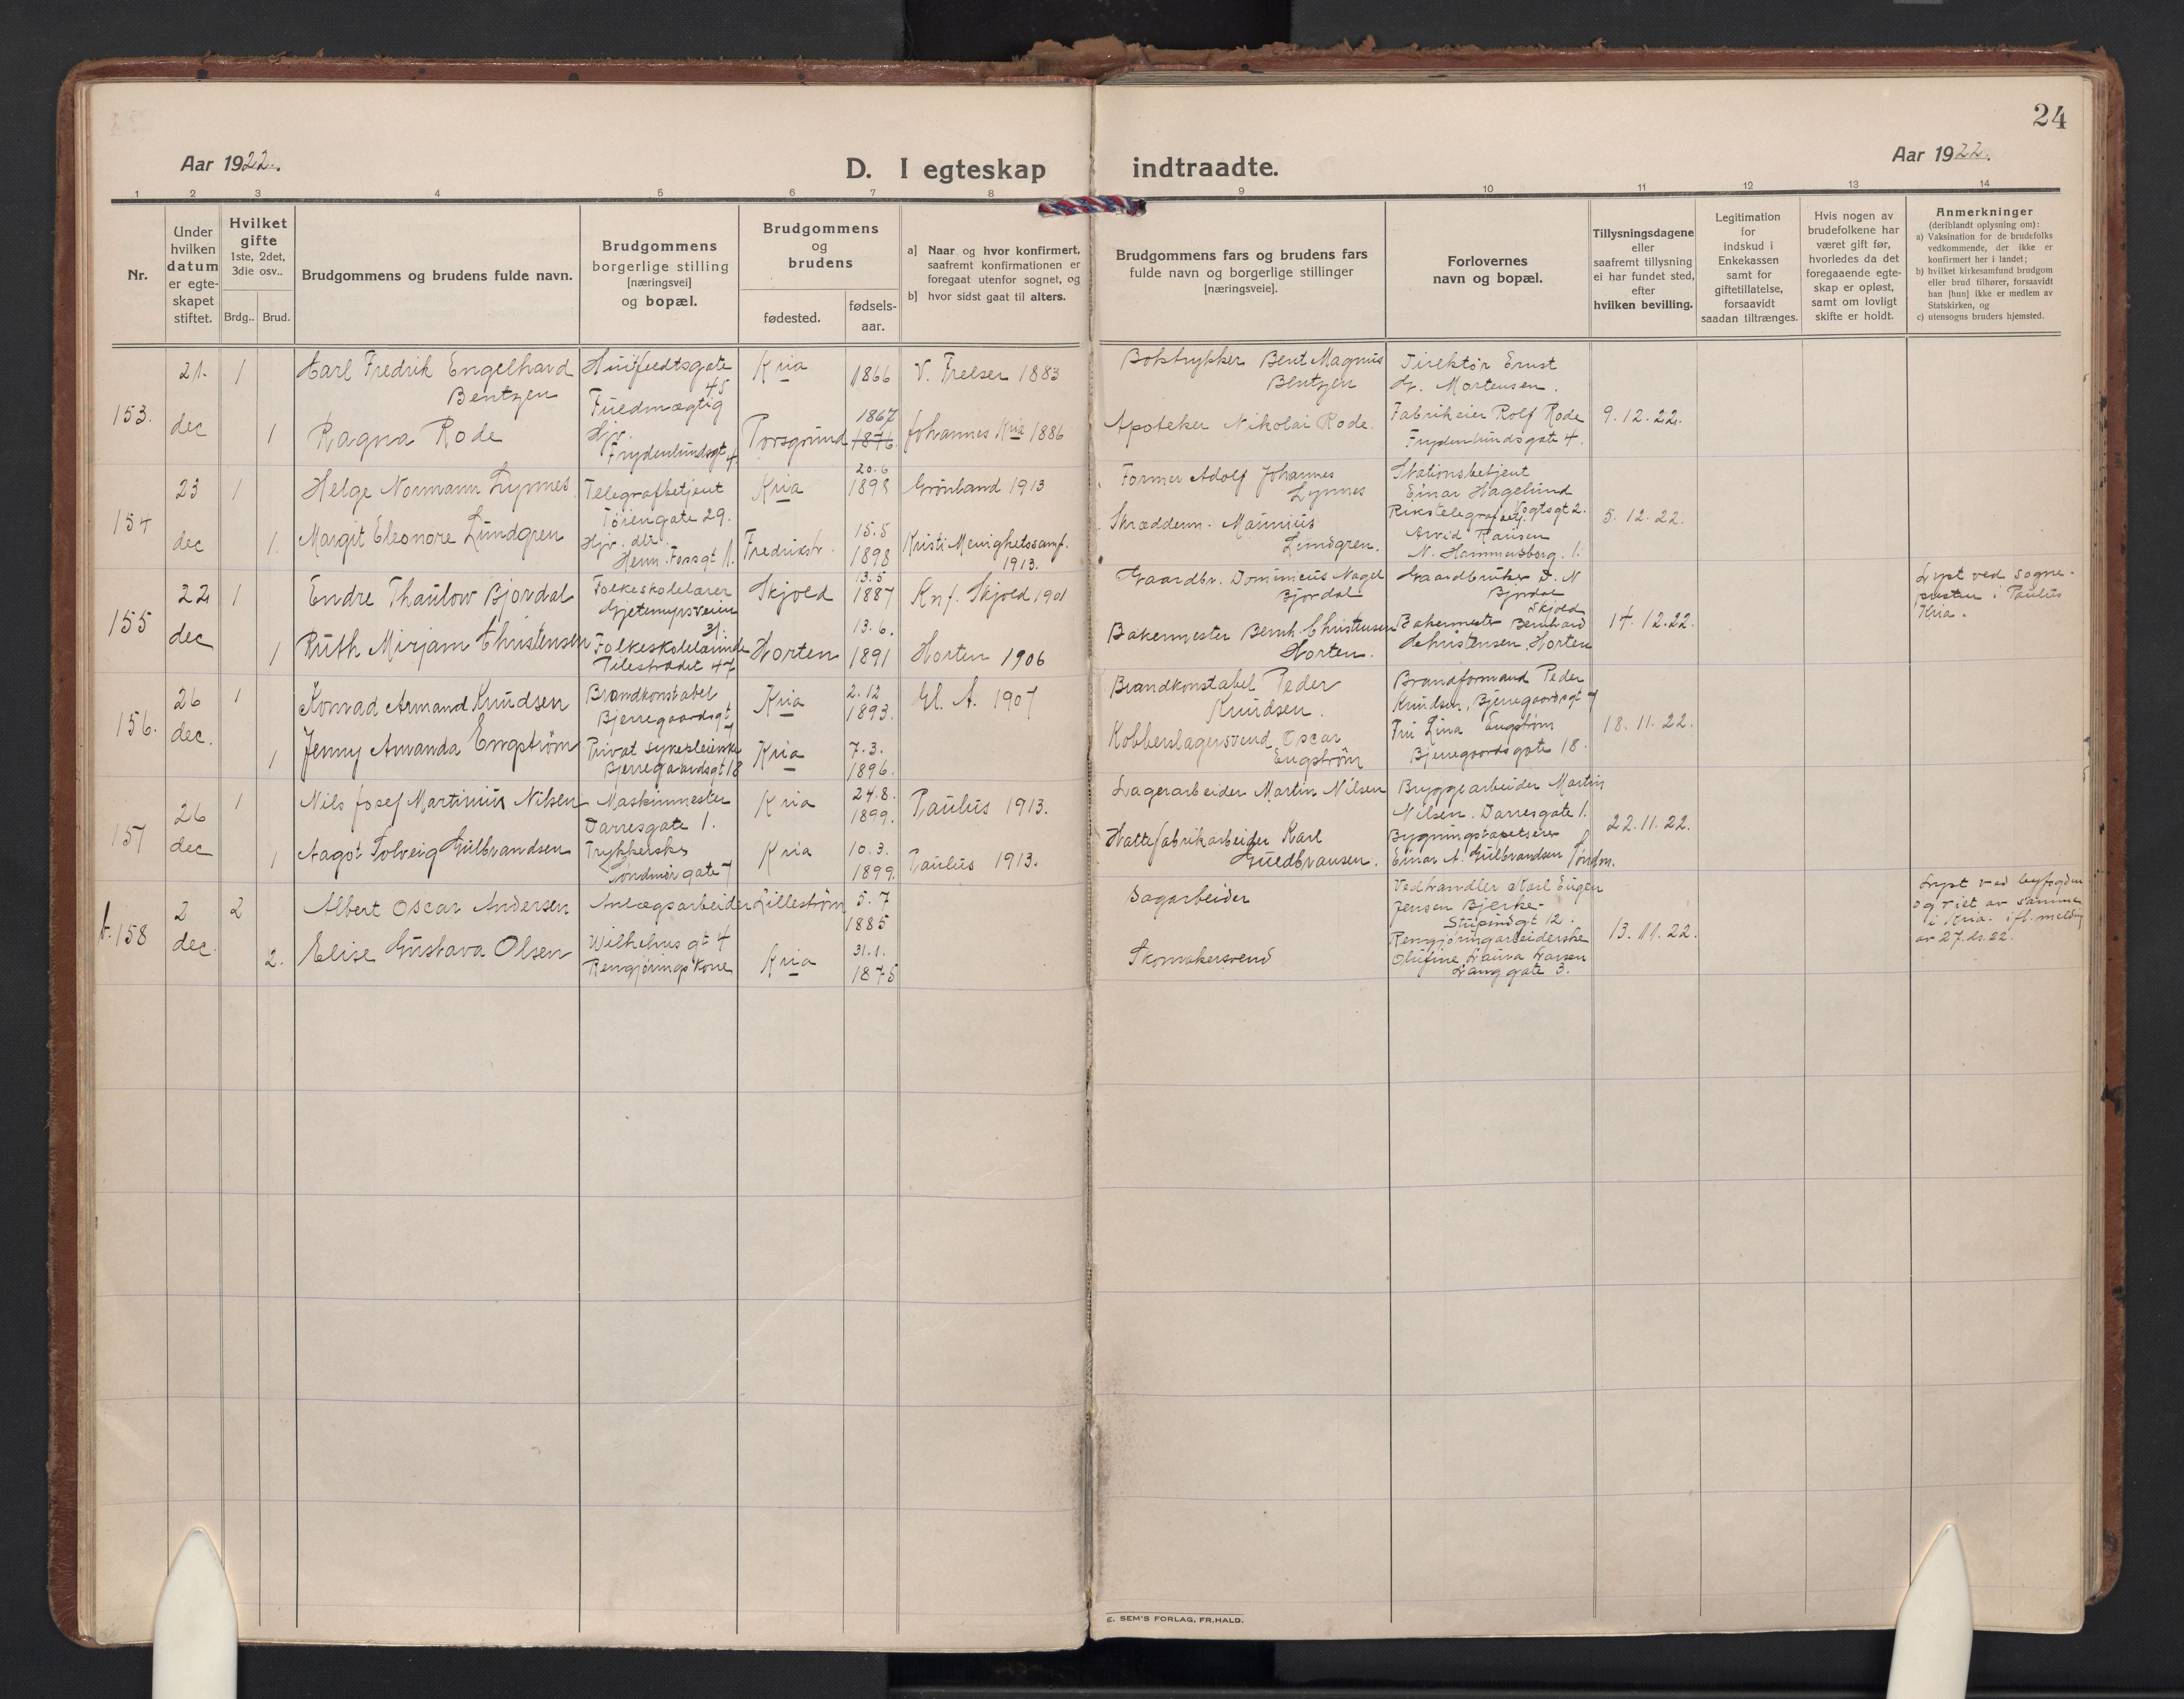 24
Aar 1922.
D. I egteskap indtraadte.
Aar 1922.
1 2 3 4 5 6 7 8 9 10 11 12 13 14
Nr.
Under
hvilken
datum
er egte-
skapet
stiftet.
Hvilket
gifte
1ste, 2det,
3die osv..
Brdg.. Brud.
Brudgommens og brudens fulde navn.
Brudgommens
borgerlige stilling
[næringsvei]
og bopæl.
Brudgommens
og
brudens
fødested.
fødsels-
aar.
a] Naar og hvor konfirmert,
saafremt konfirmationen er
foregaat utenfor sognet, og
b] hvor sidst gaat til alters.
Brudgommens fars og brudens fars
fulde navn og borgerlige stillinger
[næringsveie].
Forlovernes
navn og bopæl.
Tillysningsdagene
eller
saafremt tillysning
ei har fundet sted,
efter
hvilken bevilling.
Legitimation
for
indskud i
Enkekassen
samt for
giftetillatelse,
forsaavidt
saadan tiltrænges.
Hvis nogen av
brudefolkene har
været gift før,
hvorledes da det
foregaaende egte-
skap er opløst,
samt om lovligt
skifte er holdt.
Anmerkninger
(deriblandt oplysning om):
a) Vaksination for de brudefolks
vedkommende, der ikke er
konfirmert her i landet;
b) hvilket kirkesamfund brudgom
eller brud tilhører, forsaavidt
han [hun] ikke er medlem av
Statskirken, og
c) utensogns bruders hjemsted.
153.
21.
dec
1
Carl Fredrik Engelhard
Bentzen
Huitfeldtsgate
45
Fuldmægtig
Kria
1866
V. Frelser 1883
Boktrykker Bent Magnus
Bentzen
Direktør Ernst
G. Mortensen.
1
Ragna Rode
Hjv.
Frydenlundsgt
4.
Porsgrund
1867
1876.
Johannes Kria 1886
Apoteker Nikolai Rode.
Fabrikeier Rolf Rode
Frydenlundsgate 4.
9.12.22.
154
23
dec
1
Helge Normann Lynnes
Telegrafbetjent
Tøiengate 29.
Kria
20.6
1898
Grønland 1913
Former Adolf Johannes
Lynnes
Stationsbetjent
Einar Hagelund
Vogtsgt 2.
1.
Margit Eleonore Lundgren
Hjv. dtr.
Herm. Fossgt 11.
Fredrikst.
15.5
1898
Kristi Menighetssamf.
1913.
Skræddern. Magnus
Lundgren.
Rikstelegrafbetj.
Arvid Pausen
N. Hammersborg. 1.
5.12.22.
155
22
dec
1
Endre Thaulow Bjordal
Folkeskolelærer
Gjetemyrsveien
31.
Skjold
13.5
1887
Knf. Skjold 1901
Gaardbr. Dominicus Nagel
Bjordal
Gaardbruker D. N
Bjordal
Skjold
Lyst ved sogne-
presten i Paulus
Kria.
1
Ruth Mirjam Christensen
Folkeskolelærinde
Pilestrædet 47
Horten
13.6.
1891
Horten 1906
Bakermester Bernh. Christensen
Horten.
Bakermester Bernhard
Christensen, Horten
14.12.22.
156.
26
dec.
1
Konrad Armand Knudsen
Brandkonstabel
Bjerregaardsgt
7
Kria
2.12
1893.
Gl. A. 1907
Brandkonstabel Peder
Knudsen.
Brandformand Peder
Knudsen, Bjerregaardsgt 7
1
Jenny Amanda Engström
Privat sykepleierske
Bjerregaardsgt 18
Kria
7.3.
1896.
Kobberslagersvend Oscar
Engström
Fru Lina Engstøm
Bjerregaardsgate 18.
18.11.22.
157
26
dec
1
Nils Josef Martinius Nilsen
Maskinmester
Darresgate 1.
Kria
24.8.
1899.
Paulus 1913.
Lagerarbeider Martin Nilsen
Bryggearbeider Martin
Nilsen. Darresgate 1.
1
Aagot Solveig Gulbrandsen
Trykkerske
Søndmørgate 7
Kria
10.3.
1899.
Paulus 1913.
Hattefabrikarbeider Karl
Guldbransen.
Bygningstapetserer
Einar A. Gulbrandsen Søndm.
22.11.22.
158
2
dec.
2
Albert Oscar Andersen
Anlægsarbeider
Wilhelms gt 4
Lilleström
5.7
1885
Sagarbeider
Vedhandler Karl Eugen
Jensen Bjerke-
Stupindgt 12.
Lyst ved byfogden
og viet av samme
i Kria. ifl. melding
av 27. ds. 22.
2.
Elise Gustava Olsen
Rengjørings kone
Kria
31.1.
1875
Skomakersvend
Rengjøringarbeiderske
Olufine Laura Larsen
Langgate 3.
13.11.22.
E. SEM'S FORLAG, FR.HALD.